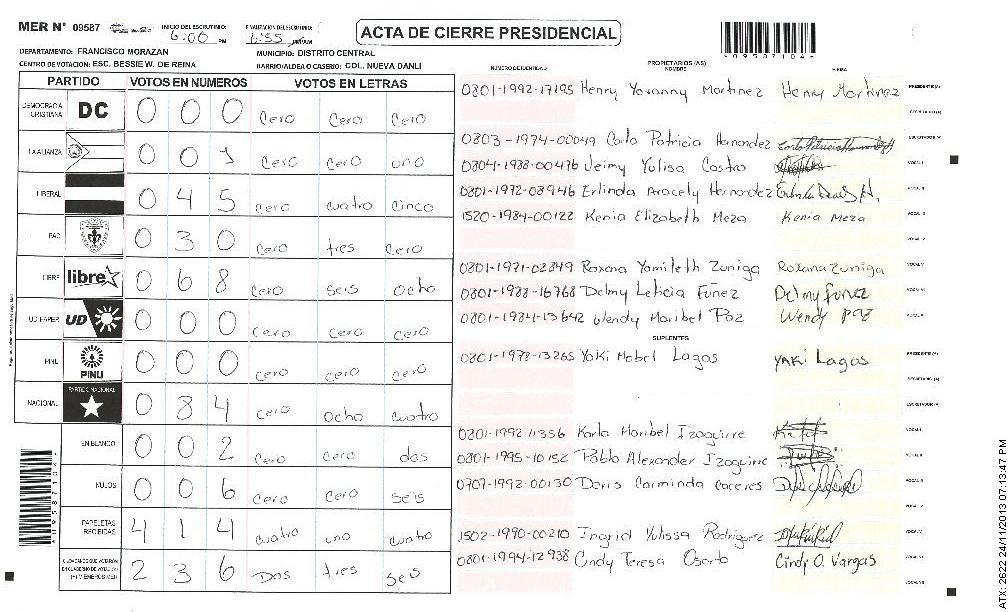 MER N° 09587
INICIO DEL ESCRUTINIO: 6:00 PM
FINALIZACION DEL ESCRUTINIO: 6:55
ACTA DE CIERRE PRESIDENCIAL
*09587104*
DEPARTAMENTO: FRANCISCO MORAZAN
MUNICIPIO: DISTRITO CENTRAL
CENTRO DE VOTACION: ESC. BESSIE W. DE REINA
BARRIO/ALDEA O CASERIO: COL. NUEVA DANLI
PARTIDO VOTOS EN NUMEROS VOTOS EN LETRAS
DEMOCRACIA CRISTIANA DC 0 0 0 Cero Cero Cero
LA ALIANZA 0 0 1 Cero Cero uno
LIBERAL 0 4 5 Cero cuatro cinco
PAC 0 3 0 Cero tres Cero
LIBRE libre 0 6 8 Cero seis ocho
UD FAPER UD 0 0 0 Cero Cero Cero
PINU PINU 0 0 0 Cero Cero Cero
NACIONAL PARTIDO NACIONAL 0 8 4 Cero ocho cuatro
EN BLANCO 0 0 2 Cero Cero dos
NULOS 0 0 6 Cero Cero seis
PAPELETAS RECIBIDAS 4 1 4 cuatro uno cuatro
CIUDADANOS QUE VOTARON EN CUADERNO DE VOTACION (+) MIEMBROS MER 2 3 6 Dos tres seis
NUMERO DE IDENTIDAD PROPIETARIOS (AS) NOMBRE FIRMA
0801-1992-17195 Henry Yovanny Martinez Henry Martinez PRESIDENTE(A)
SECRETARIO (A)
0803-1974-00049 Carla Patricia Hernandez ESCRUTADOR (A)
0804-1988-00476 Jeimy Yulisa Castro VOCAL I
0801-1972-08946 Erlinda Aracely Hernandez VOCAL II
1520-1984-00122 Kenia Elizabeth Meza Kenia Meza VOCAL III
VOCAL IV
0801-1971-02849 Roxana Yamileth Zuniga Roxana Zuniga VOCAL V
0801-1988-16768 Delmy Leticia Funez Delmy Funez VOCAL VI
0801-1984-13642 Wendy Maribel Paz Wendy Paz
SUPLENTES
0801-1978-13265 Yaki Mabel Lagos Yaki Lagos PRESIDENTE (A)
SECRETARIO (A)
ESCRUTADOR (A)
0801-1992-11356 Karla Maribel Izaguirre VOCAL I
0801-1995-10152 Pablo Alexander Izaguirre VOCAL II
0707-1992-00130 Doris Carminda Caceres VOCAL III
VOCAL IV
1502-1990-00210 Ingrid Yulissa Rodriguez VOCAL V
0801-1994-12938 Cindy Teresa Osorto Cindy O. Vargas VOCAL VI
VOCAL VII
ATX: 2622 24/11/2013 07:13:47 PM